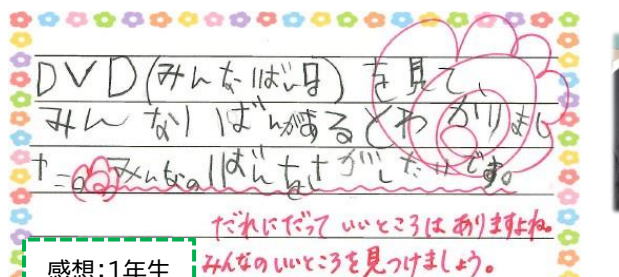 DVD(みんな1ばん日)を見て、
みんな1ばんがあるとわかりまし
た。みんなの1ばんさがしたいです。
だれにだって いいところは ありますよね。
みんなのいいところを見つけましょう。
感想:1年生